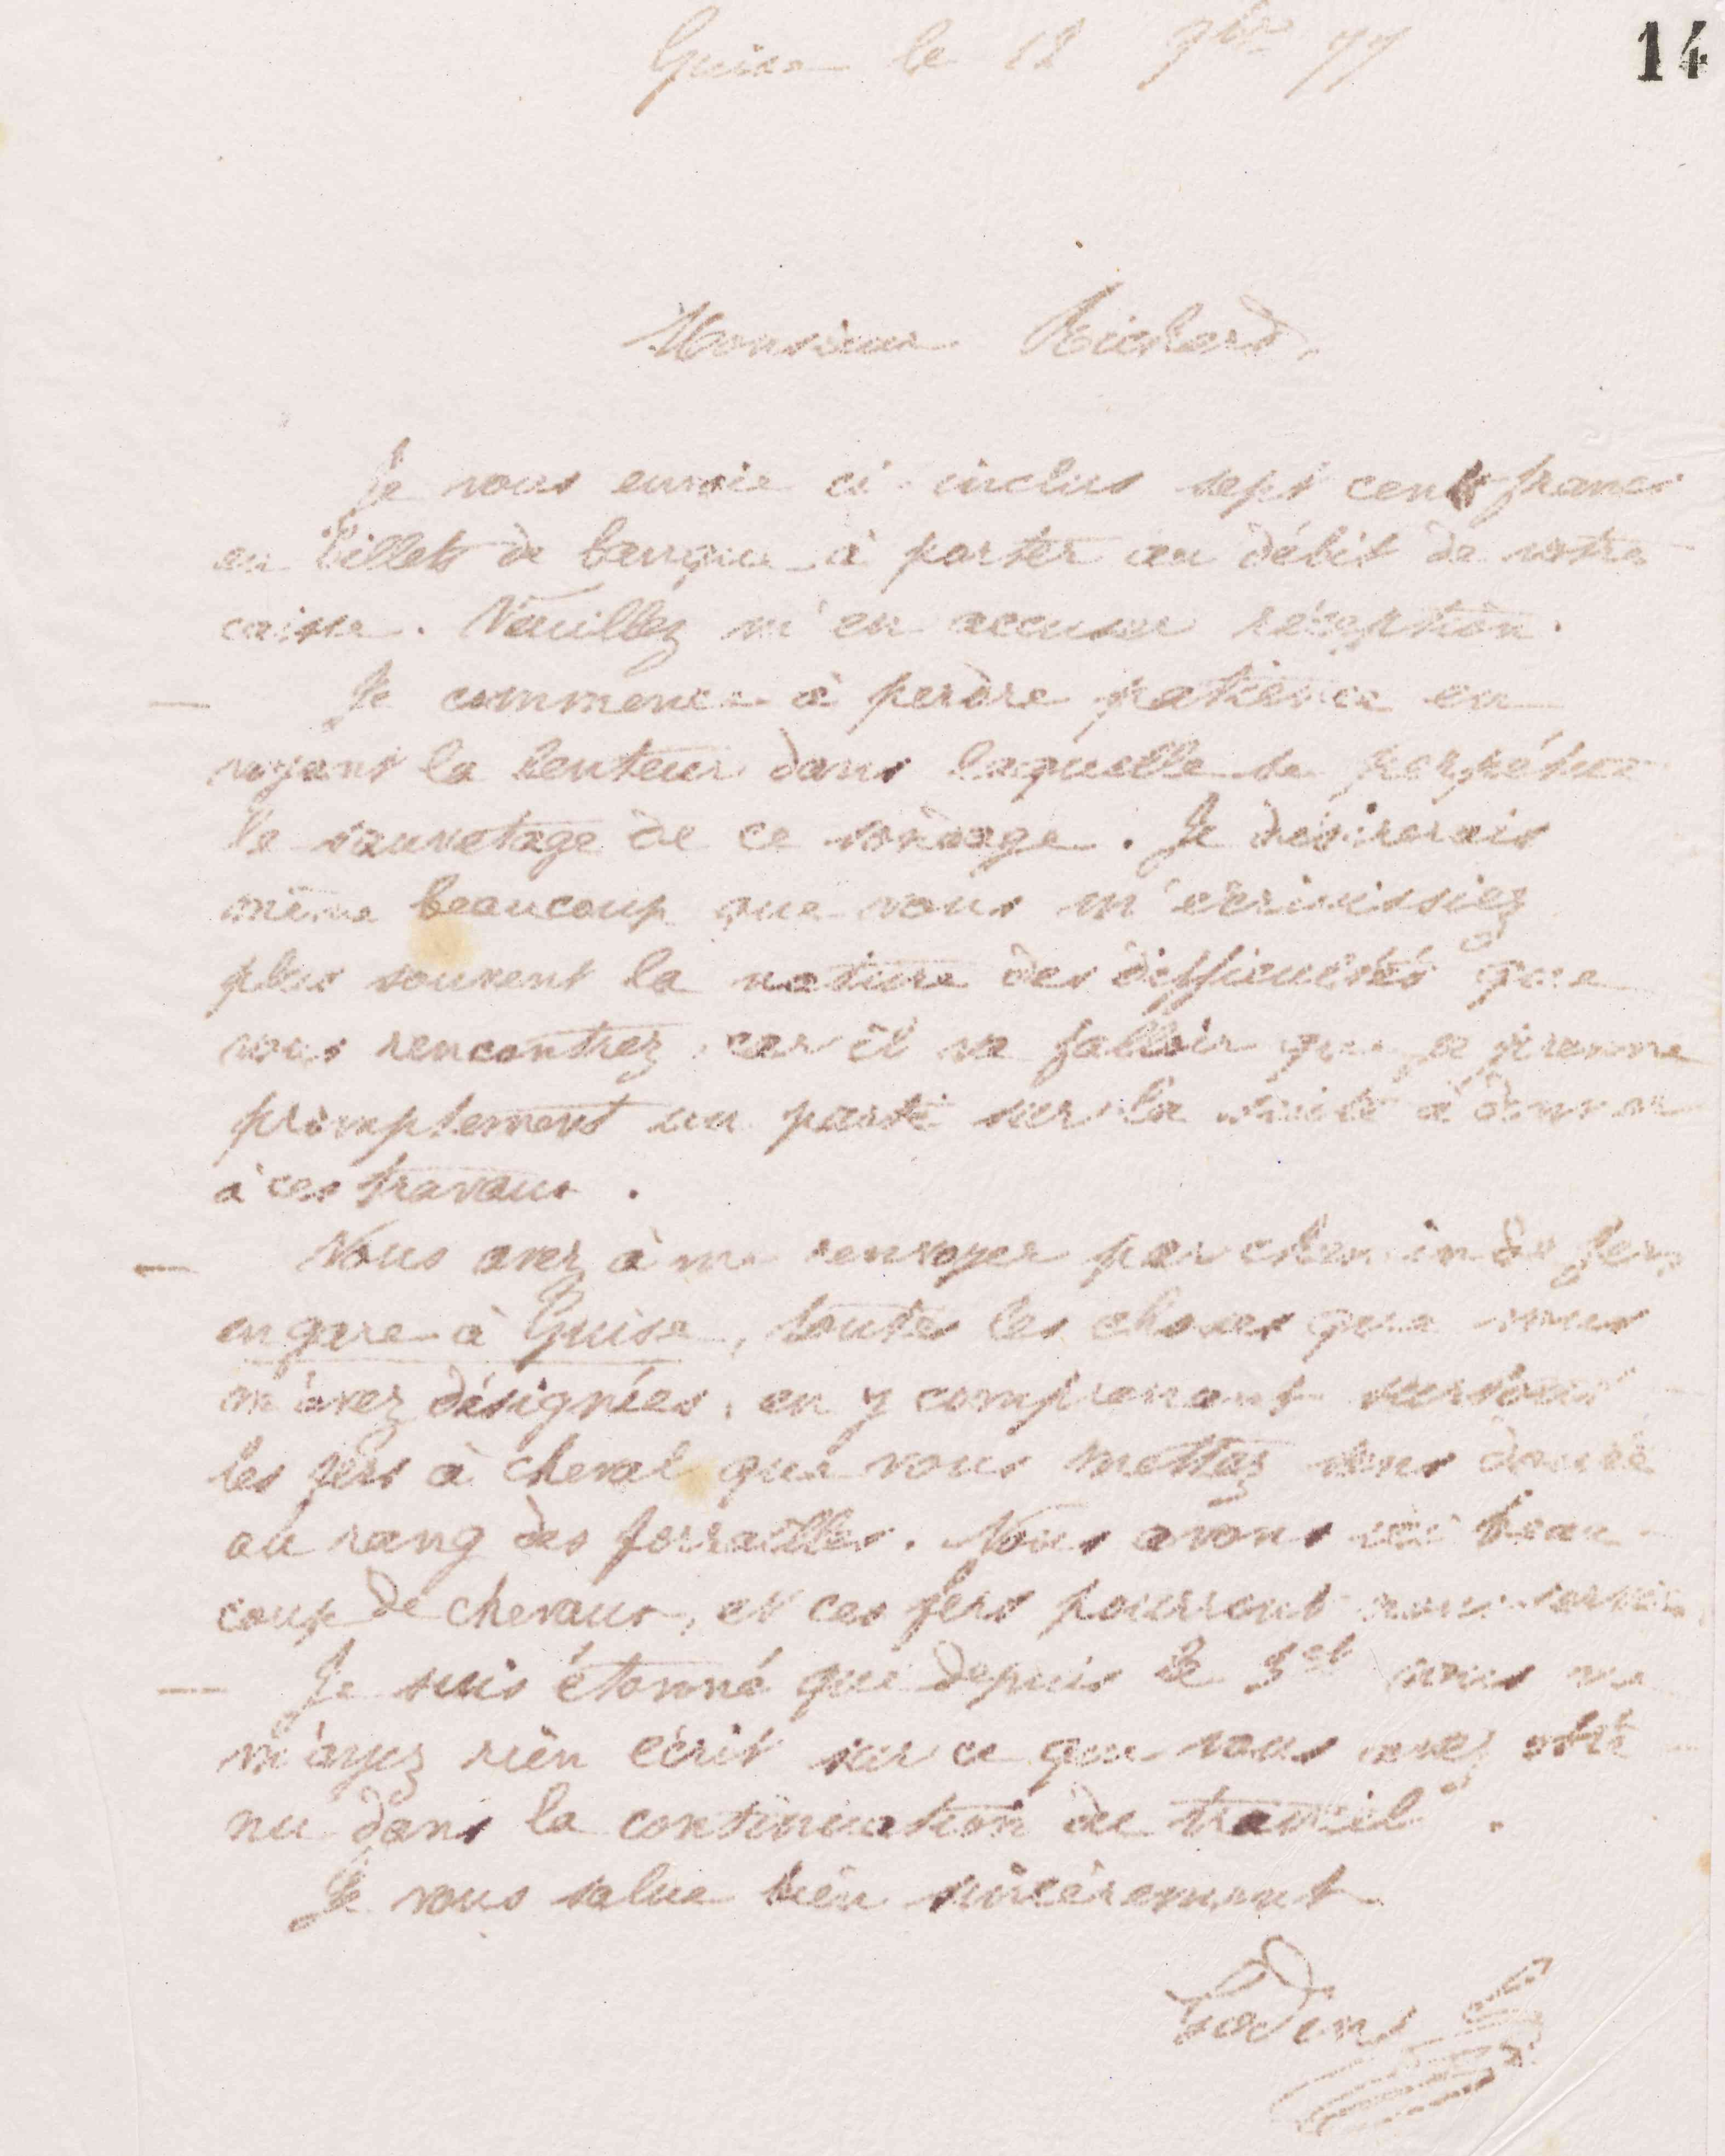 14
Guise le 12 9bre 77
Monsieur Richard,
Je vous envoie ci-inclus sept cents francs
en billets de banque à porter au débit de votre
caisse. Veuillez m'en accuser réception.
— Je commence à perdre patience en
voyant la lenteur dans laquelle se perpétue
le sauvetage de ce sondage. Je désirerais
même beaucoup que vous m'écrivissiez
plus souvent la nature des difficultés que
vous rencontrez car il va falloir que je prenne
promptement un parti sur la suite à donner
à ces travaux.
— Vous avez à me renvoyer par chemin de fer,
en gare à Guise, toutes les choses que vous
m'avez désignées, en y comprenant surtout
les fers à cheval que vous mettez sans doute
au rang des ferrailles. Nous avons ici beau-
coup de chevaux, et ces fers pourront nous servir.
— Je suis étonné que depuis le 3 et vous ne
m'ayez rien écrit sur ce que vous avez obte-
nu dans la continuation du travail.
Je vous salue bien sincèrement
Godin